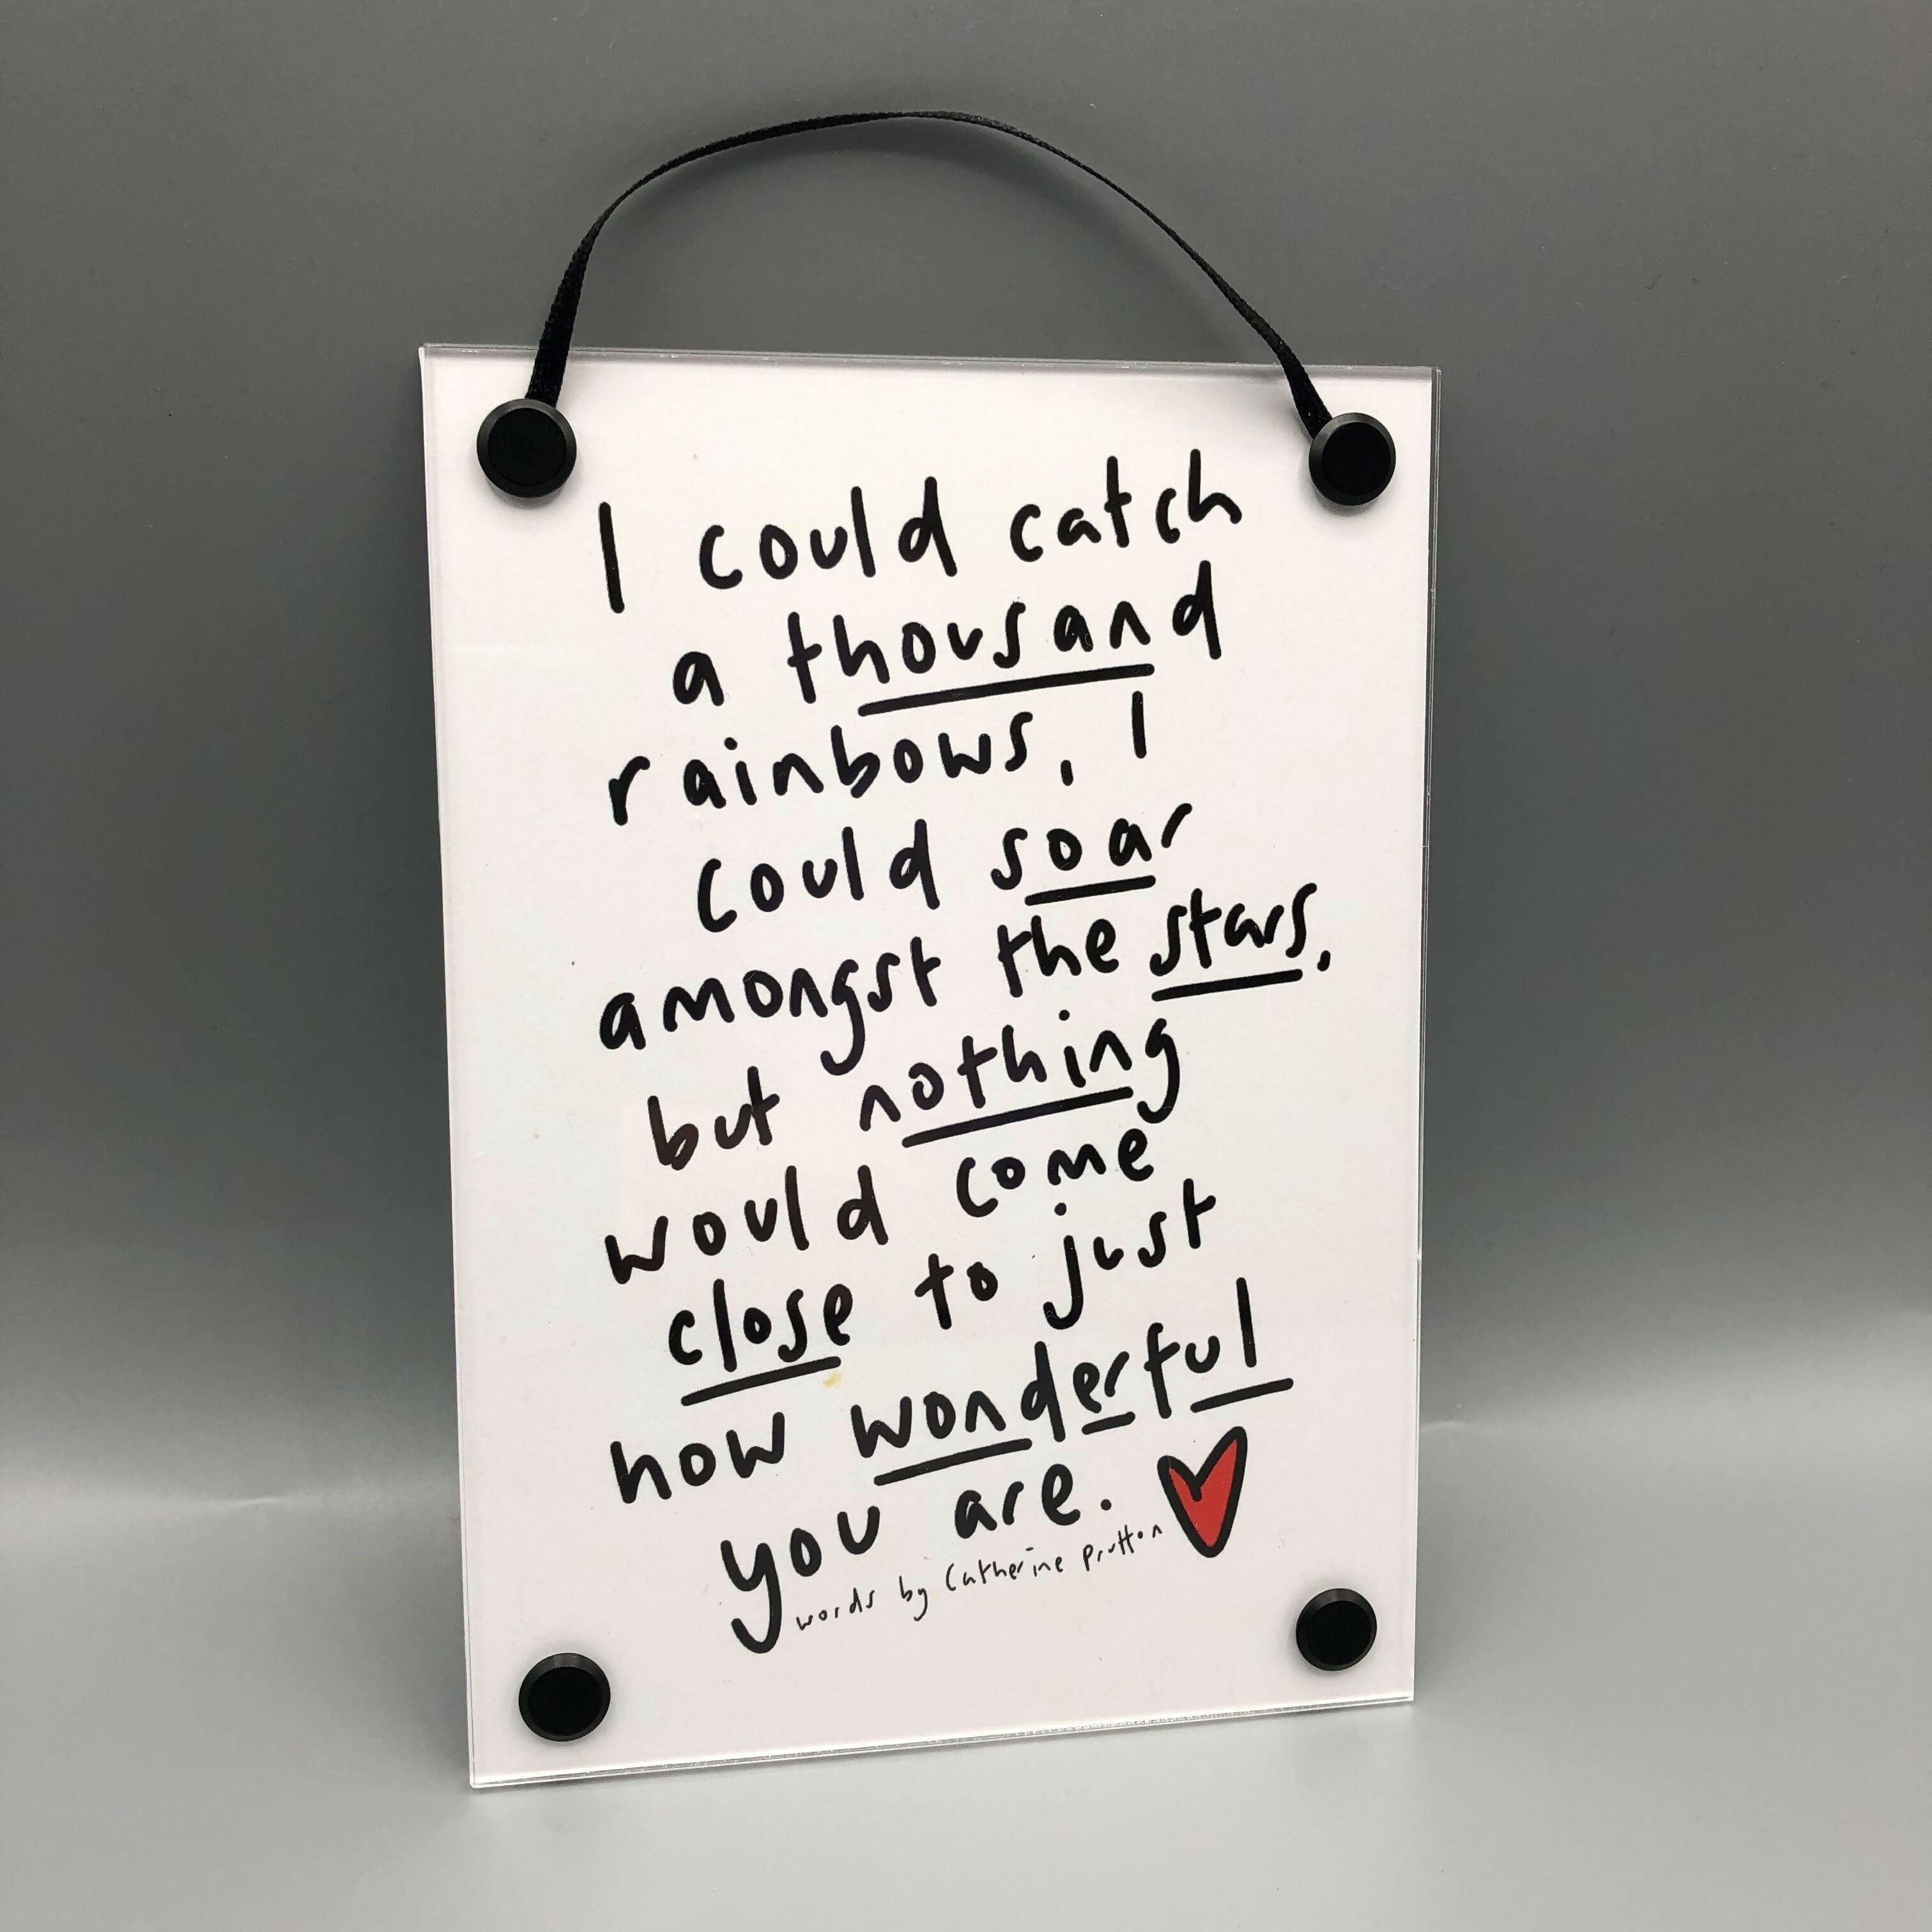 I could catch
a thousand
rainbows, I
could soar
amongst the stars,
but nothing
would come
close to just
how wonderful
you are.
words by Catherine Prutton